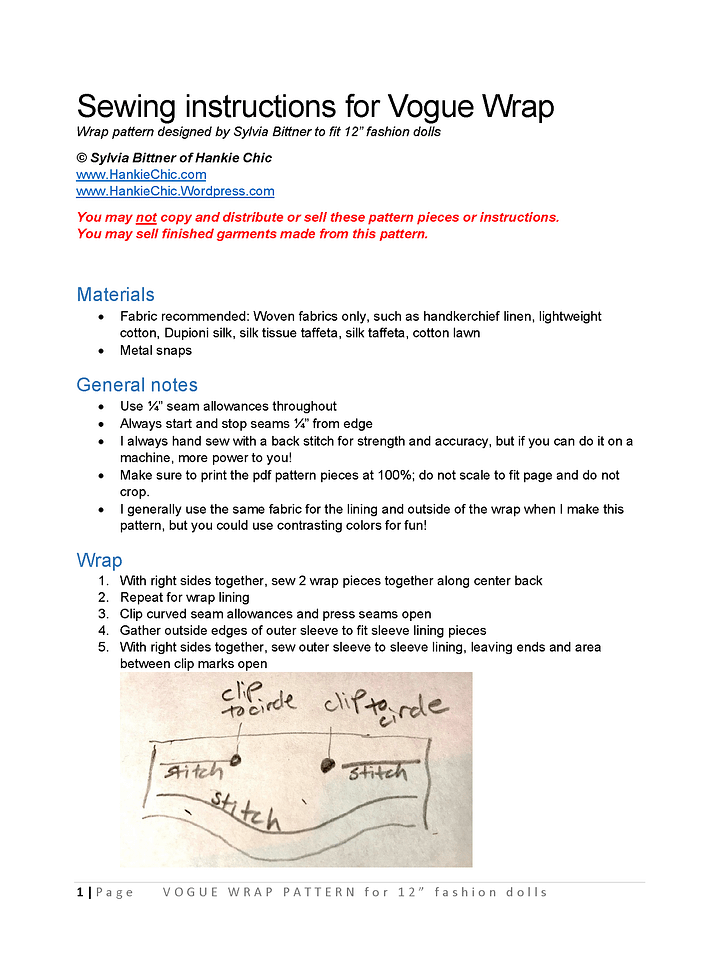 Sewing instructions for Vogue Wrap
Wrap pattern designed by Sylvia Bittner to fit 12” fashion dolls
© Sylvia Bittner of Hankie Chic
www.HankieChic.com
www.HankieChic.Wordpress.com
You may not copy and distribute or sell these pattern pieces or instructions.
You may sell finished garments made from this pattern.
Materials
• Fabric recommended: Woven fabrics only, such as handkerchief linen, lightweight
cotton, Dupioni silk, silk tissue taffeta, silk taffeta, cotton lawn
• Metal snaps
General notes
• Use ¼” seam allowances throughout
• Always start and stop seams ¼” from edge
• I always hand sew with a back stitch for strength and accuracy, but if you can do it on a
machine, more power to you!
• Make sure to print the pdf pattern pieces at 100%; do not scale to fit page and do not
crop.
• I generally use the same fabric for the lining and outside of the wrap when I make this
pattern, but you could use contrasting colors for fun!
Wrap
1. With right sides together, sew 2 wrap pieces together along center back
2. Repeat for wrap lining
3. Clip curved seam allowances and press seams open
4. Gather outside edges of outer sleeve to fit sleeve lining pieces
5. With right sides together, sew outer sleeve to sleeve lining, leaving ends and area
between clip marks open
clip
to circle
clip to
circle
stitch
stitch
stitch
1 | Page VOGUE WRAP PATTERN for 12” fashion dolls